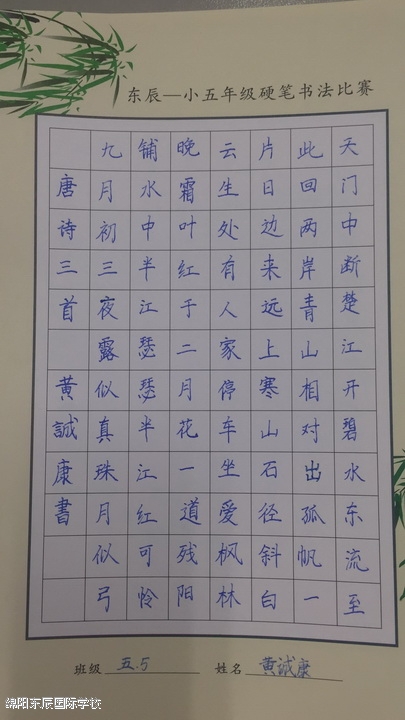 东辰一小五年级硬笔书法比赛
天门中断楚江开碧水东流至
此回两岸青山相对出孤帆一
片日边来远上寒山石径斜白
云生处有人家停车坐爱枫林
晚霜叶红于二月花一道残阳
铺水中半江瑟瑟半江红可怜
九月初三夜露似真珠月似弓
唐诗三首 黄誠康書
班级 五.5 姓名 黄誠康
绵阳东辰国际学校